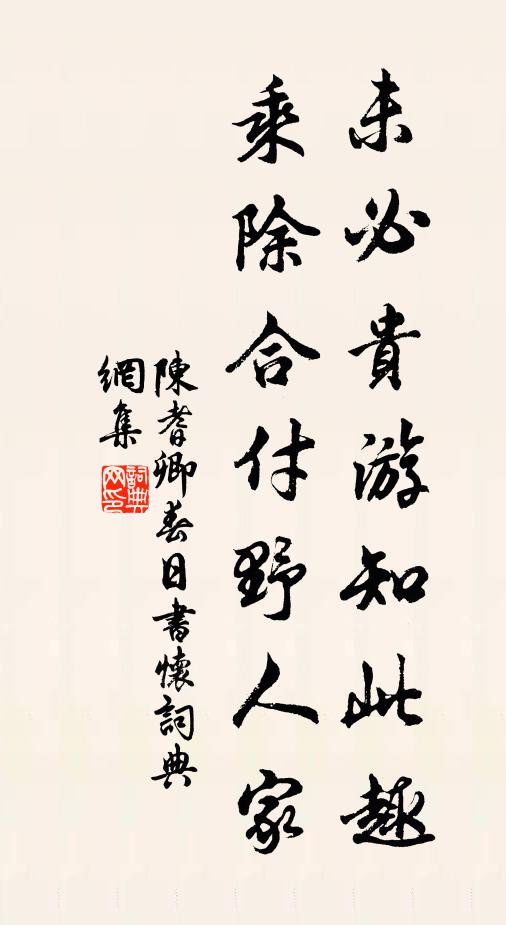 未必貴游知此趣
乘除合付野人家
陳耆卿春日書懷詞典
網集
詞典
网印